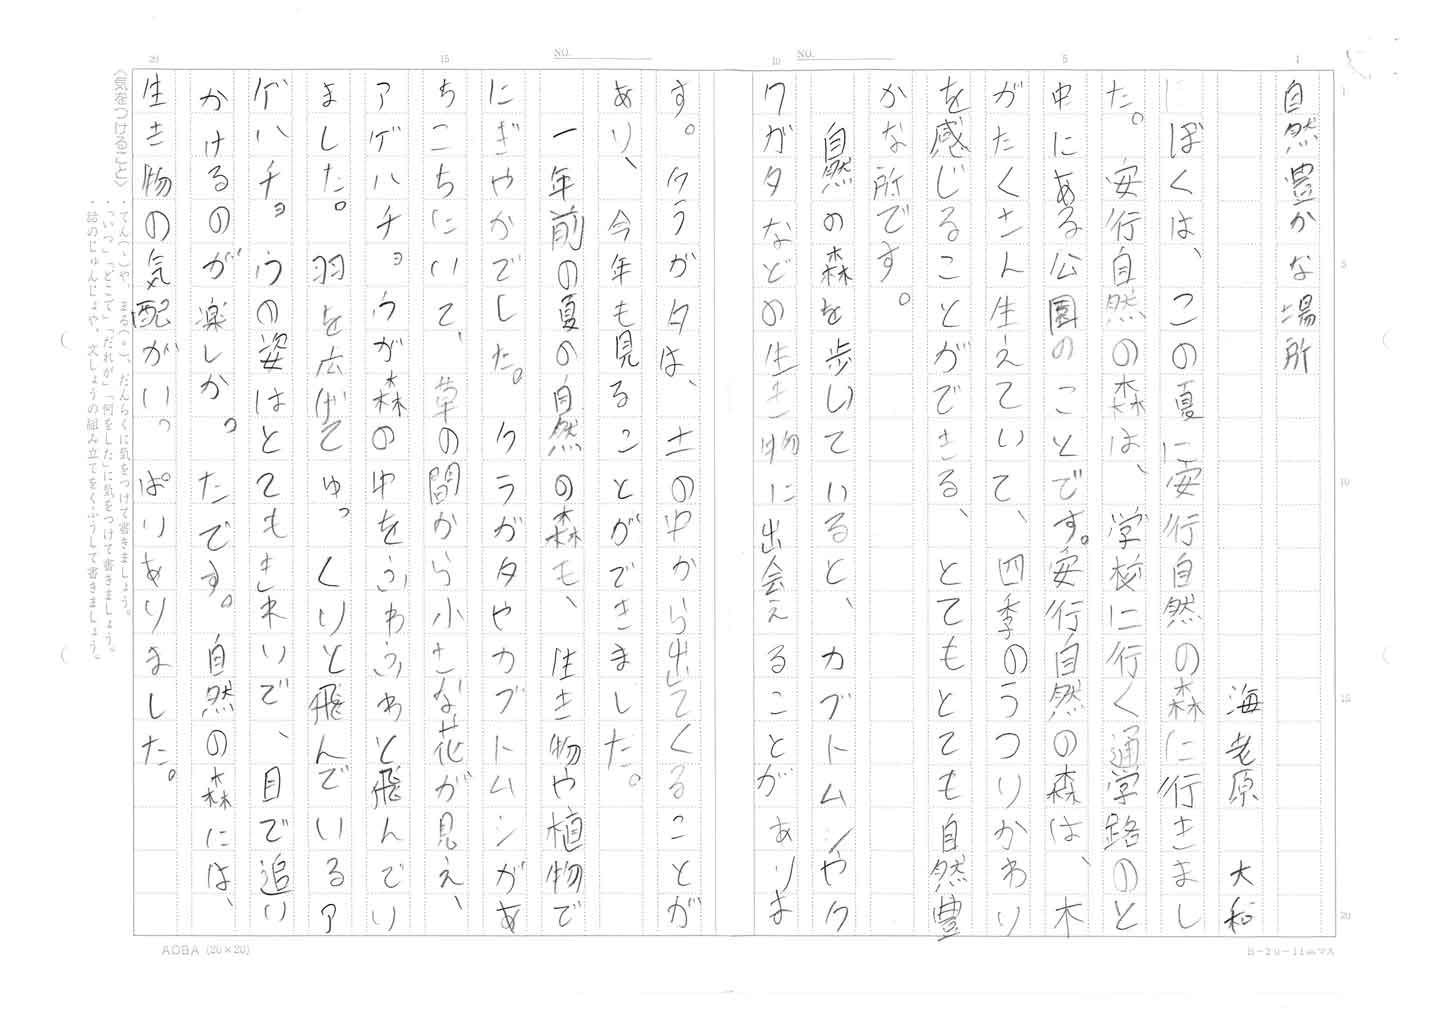 自然豊かな場所
海老原 大和
ぼくは、この夏に安行自然の森に行きまし
た。安行自然の森は、学校に行く通学路のと
中にある公園のことです。安行自然の森は、木
がたくさん生えていて、四季のうつりかわり
を感じることができる、とてもとても自然豊
かな所です。
自然の森を歩いていると、カブトムシやク
ワガタなどの生き物に出会えることがありま
す。クワガタは、土の中から出てくることが
あり、今年も見ることができました。
一年前の夏の自然の森も、生き物や植物で
にぎやかでした。クワガタやカブトムシがあ
ちこちにいて、草の間から小さな花が見え、
アゲハチョウが森の中をふわふわと飛んでい
ました。羽を広げてゆっくりと飛んでいるア
ゲハチョウの姿はとてもきれいで、目で追い
かけるのが楽しかったです。自然の森には、
生き物の気配がいっぱいありました。
NO.
NO.
1
5
10
15
20
1
5
10
15
20
〈気をつけること〉
・てん(、)や、まる(。)、だんらくに気をつけて書きましょう。
・「いつ」「どこで」「だれが」「何をした」に気をつけて書きましょう。
・話のじゅんじょや、文しょうの組み立てをくふうして書きましょう。
AOBA (20×20)
B-20-11㎜マス